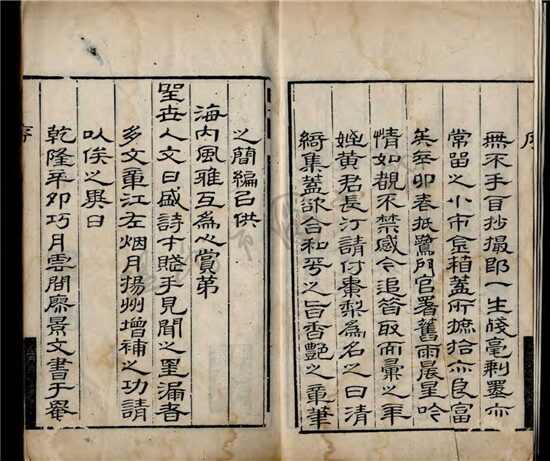 序
無不手自抄撮即一生殘毫剩墨亦
常留之小市京箱蓋所摭拾亦良富
矣辛卯春抵鷺門官署舊雨晨星吟
情如覩不禁感今追昔取而彙之年
姪黃君長汀請付棗梨為名之曰清
綺集蓋詠合和平之旨香艷之章筆
之簡編已供
海內風雅互為心賞第
聖世人文日盛詩才賦手見聞之罣漏者
多文章江左烟月揚州增補之功請
以俟之異日
乾隆辛卯巧月雲間廖景文書于羣
序